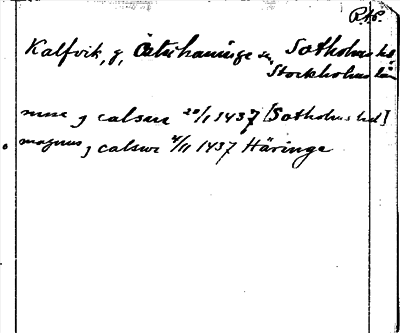 R.A.P.
Kalfvik, g, Österhaninge sn, Sotholms hd,
Stockholms län
nnne j calswe 20/1 1437 [Sotholms hd]
magnus j calswe 4/11 1437 Häringe